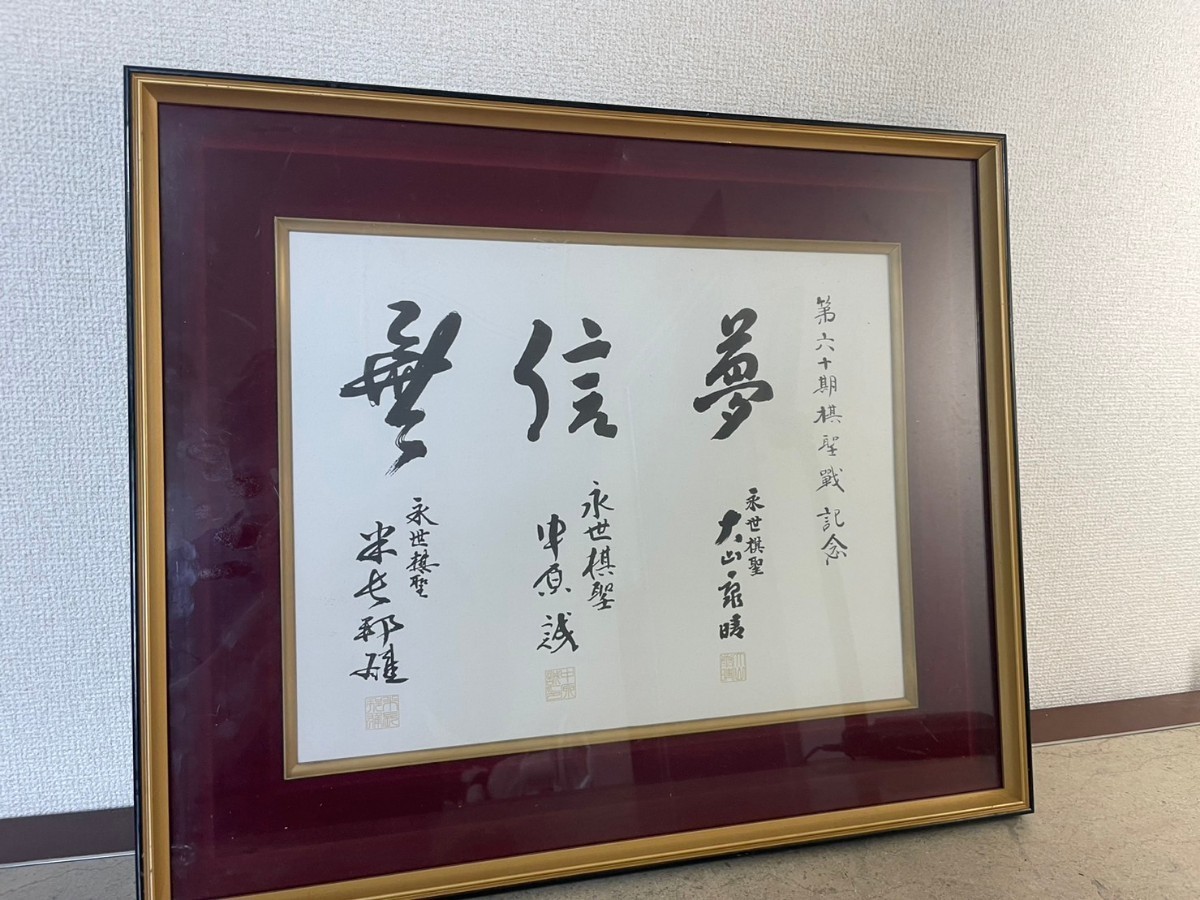 第六十期棋聖戰 記念
夢
永世棋聖
大山康晴
信
永世棋聖
中原誠
無
永世棋聖
米長邦雄